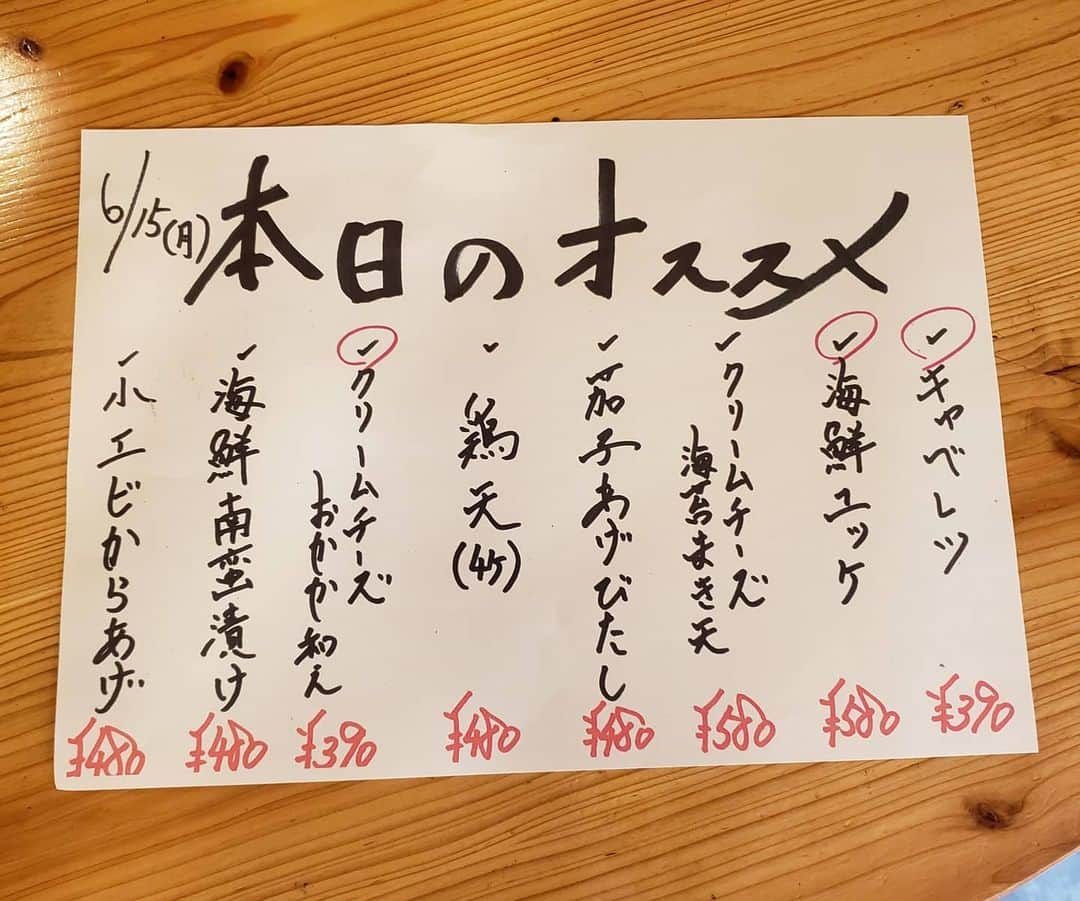 6/15(月)
本日のオススメ
✓キャベレツ
¥390
✓海鮮ユッケ
¥580
✓クリームチーズ
海苔まき天
¥580
✓茄子あげびたし
¥480
✓鶏天(4ヶ)
¥480
✓クリームチーズ
おかか和え
¥390
✓海鮮南蛮漬け
¥480
✓小エビからあげ
¥480